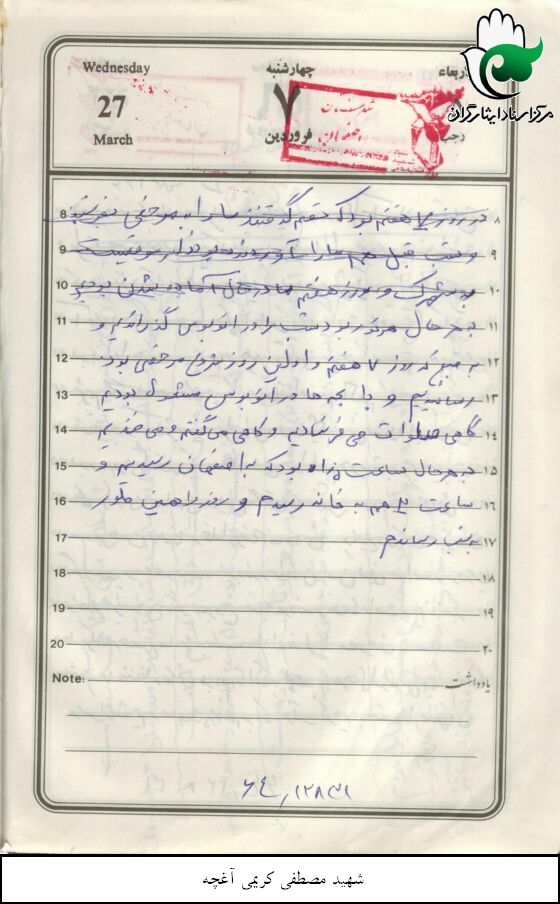 Wednesday
27
March
چهارشنبه
۷
فروردین
اربعاء
رجب
مرکز اسناد ایثارگران
8 در روز ۷ هفتم بود که گفتند ما را به مرخصی ۸
9 و شب قبل هم ما را ۹
10 به شهرک و روز هفتم ما در حال آماده شدن بودیم ۱۰
11 به هر حال هر طور بود شب را در اتوبوس گذراندیم و ۱۱
12 به صبح که روز ۷ هفتم و اولین روز شروع مرخصی بود ۱۲
13 رساندیم و با بچه ها در اتوبوس مشغول بودیم ۱۳
14 گاهی صلوات می فرستادیم و گاهی می گفتیم و می خندیدیم ۱۴
15 به هر حال ساعت بود که به اصفهان رسیدیم و ۱۵
16 ساعت هم به خانه رسیدم و روز را همین طور ۱۶
17 به شب رساندم ۱۷
18 ۱۸
19 ۱۹
20 ۲۰
Note: یادداشت
شهید مصطفی کریمی آغچه